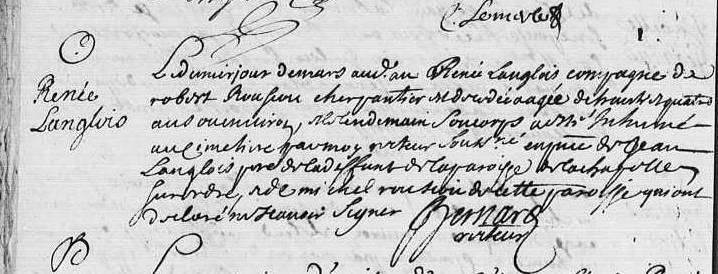 C. Lemerle
Renée
Langlois
Le dernier jour de mars aud. an Renée Langlois compagne de
robert Roussou cherpantier est decedéé aagéé de trante et quatre
ans ou environ, et le lendemain son corps a esté Inhumé
au Cimetiere par moy recteur soubs né en pnce de Jean
Langlois pere de la deffunt de la paroisse de la chapelle
sur erdre, et de michel roussou de cette paroisse qui ont
declaré ne scavoir signer
Bernard
recteur
B